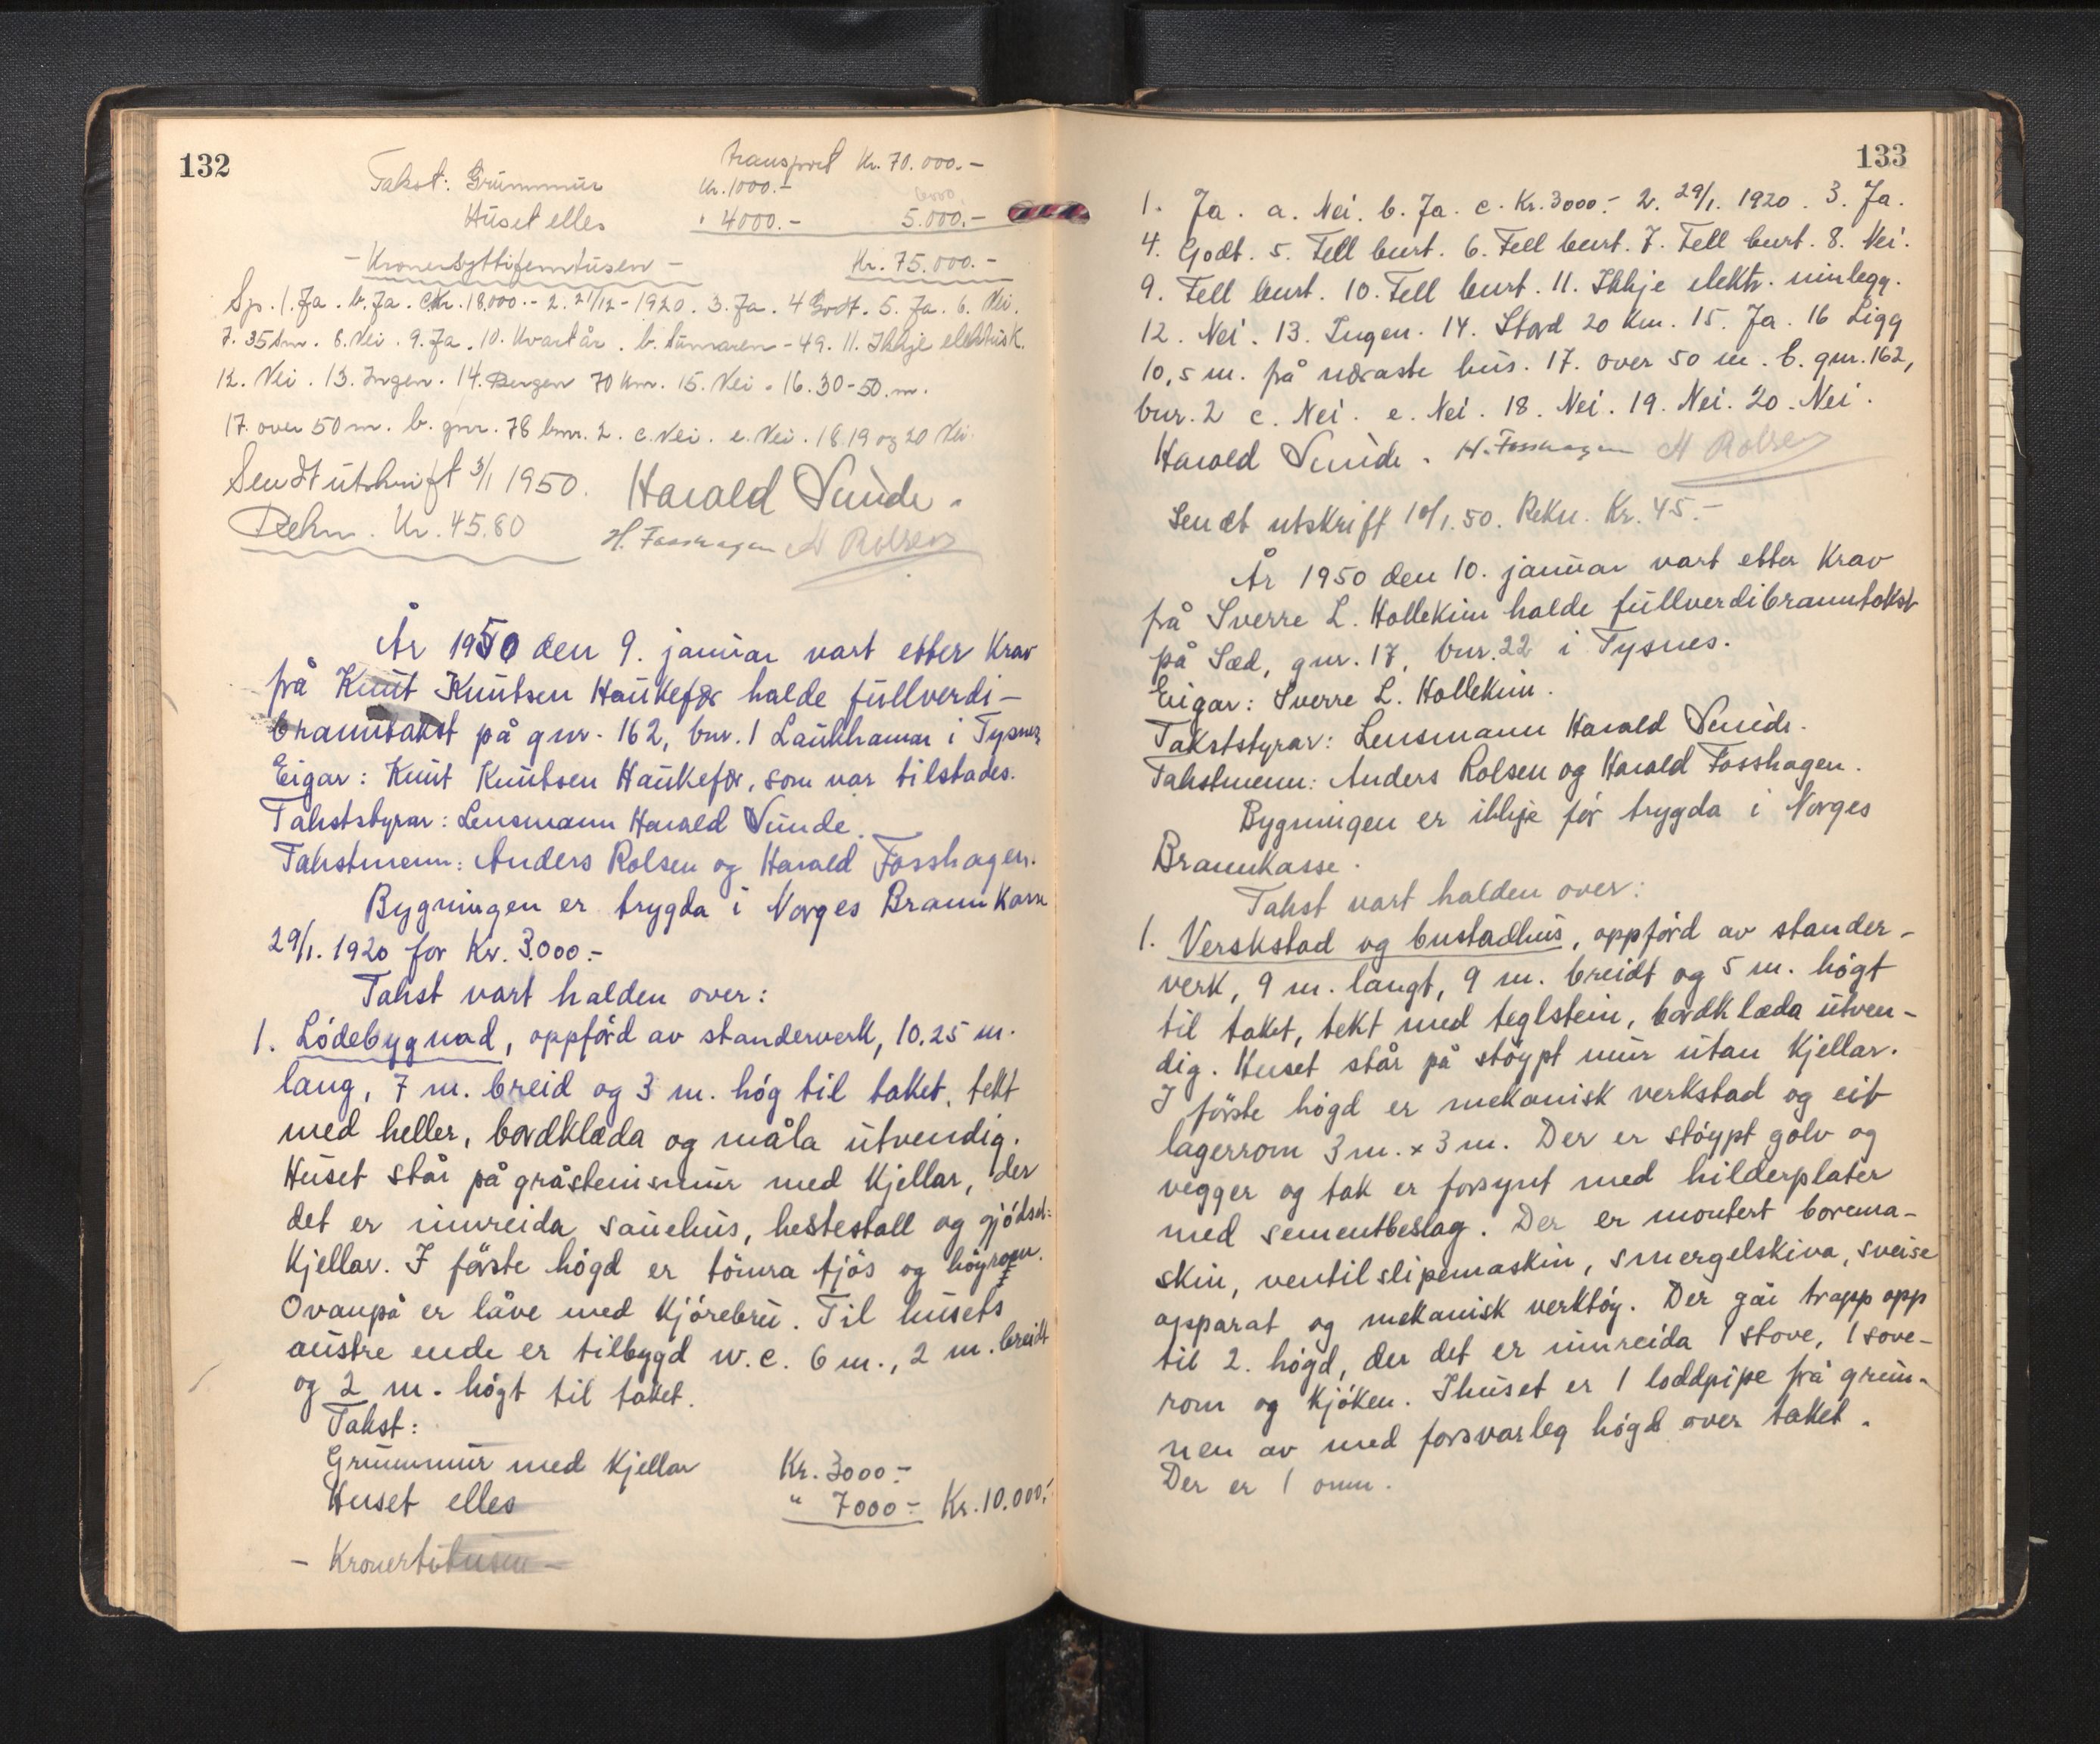 132
transport Kr. 70.000.-
Takst: Grunnmur Kr. 1000.-
Huset elles " 4000.- 5.000.-
- Kronersyttifemtusen - Kr. 75.000.-
Sp. 1. Ja. b. Ja. c. Kr. 18.000.- 2. 21/12-1920. 3. Ja. 4 Godt. 5. Ja. 6. Nei.
7. 35 sm. 8. Nei. 9. Ja. 10. Kvart år. b. sumaren - 49. 11. Ikkje elektrisk.
12. Nei. 13. Ingen. 14. Bergen 70 km. 15. Nei. 16. 30-50. m.
17. over 50 m. b. gnr. 78 bnr. 2. c. Nei. e. Nei. 18 19 og 20 Nei.
Sendt utskrift 3/1 1950. Harald Sunde.
Rekn. Kr. 45.80 H. Fosshagen A Rolsen
År 1950 den 9. januar vart etter Krav
frå Knut Knutsen Haukefær halde fullverdi-
branntakst på gnr. 162, bnr. 1 Laukhamar i Tysnes
Eigar: Knut Knutsen Haukefær, som var tilstades.
Takststyrar: Lensmann Harald Sunde.
Takstmenn: Anders Rolsen og Harald Fosshagen.
Bygningen er trygda i Norges Brannkasse
29/1. 1920 for Kr. 3.000.-
Takst vart halden over:
1. Lödebygnad, oppförd av standerverk, 10.25 m.
lang, 7 m. breid og 3 m. hög til taket, tekt
med heller, bordklæda og måla utvendig.
Huset står på gråsteinsmur med Kjellar, der
det er innreida sauehus, hestestall og gjödsel-
Kjellar. I förste högd er tömra fjös og höyrom.
Ovanpå er låve med Kjörebru. Til husets
austre ende er tilbygd W.C. 6 m., 2 m. breidt
og 2 m. högt til taket.
Takst:
Grunnmur med Kjellar Kr. 3000.-
Huset elles " 7000.- Kr. 10.000.-
- Kronertitusen -
133
1. Ja. a. Nei. b. Ja. c. Kr. 3000.- 2. 29/1. 1920. 3. Ja.
4. Godt. 5. Fell burt. 6. Fell burt. 7. Fell burt. 8. Nei.
9. Fell burt. 10. Fell burt. 11. Ikkje elektr. innlegg.
12. Nei. 13. Ingen. 14. Stord 20 Km. 15. Ja. 16 Ligg
10,5 m. frå næraste hus. 17. over 50 m. b. gnr. 162,
bnr. 2 c. Nei. e. Nei. 18. Nei. 19. Nei. 20. Nei.
Harald Sunde. H. Fosshagen A Rolsen
Sendt utskrift 10/1.50. Rekn. Kr. 45.-
År 1950 den 10. januar vart etter Krav
frå Sverre L. Hollekim halde fullverdibranntakst
på Sæd, gnr. 17, bnr. 22 i Tysnes.
Eigar: Sverre L. Hollekim.
Takststyrar: Lensmann Harald Sunde.
Takstmenn: Anders Rolsen og Harald Fosshagen.
Bygningen er ikkje för trygda i Norges
Brannkasse.
Takst vart halden over:
1. Verskstad og bustadhus, oppförd av stander-
verk, 9 m. langt, 9 m. breidt og 5 m. högt
til taket, tekt med teglstein, bordklæda utven-
dig. Huset står på stöypt mur utan Kjellar.
I förste högd er mekanisk verkstad og eit
lagerrom 3 m. x 3 m. Der er stöypt golv og
vegger og tak er forsynt med hilderplater
med sementbeslag. Der er montert borema-
skin, ventilslipemaskin, smergelskiva, sveise
apparat og mekanisk verktöy. Der går trapp opp
til 2. högd, der det er innreida 1 stove, 1 sove-
rom og Kjöken. I huset er 1 loddpipe frå grun-
nen av med forsvarleg högd over taket.
Der er 1 omn.